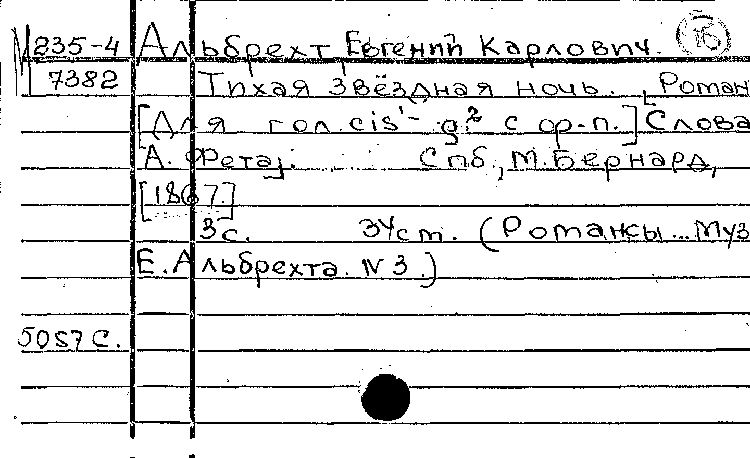 М 235-4 Альбрехт Евгений Карлович. 16
7382 Тихая звёздная ночь. Роман
[Для гол. cis¹- g² с ор-п.] Слова
А. Фета]. Спб., М. Бернард,
[1867.]
3 с. 3 Уст. (Романсы... Муз
Е. Альбрехта. N 3.)
5057 С.